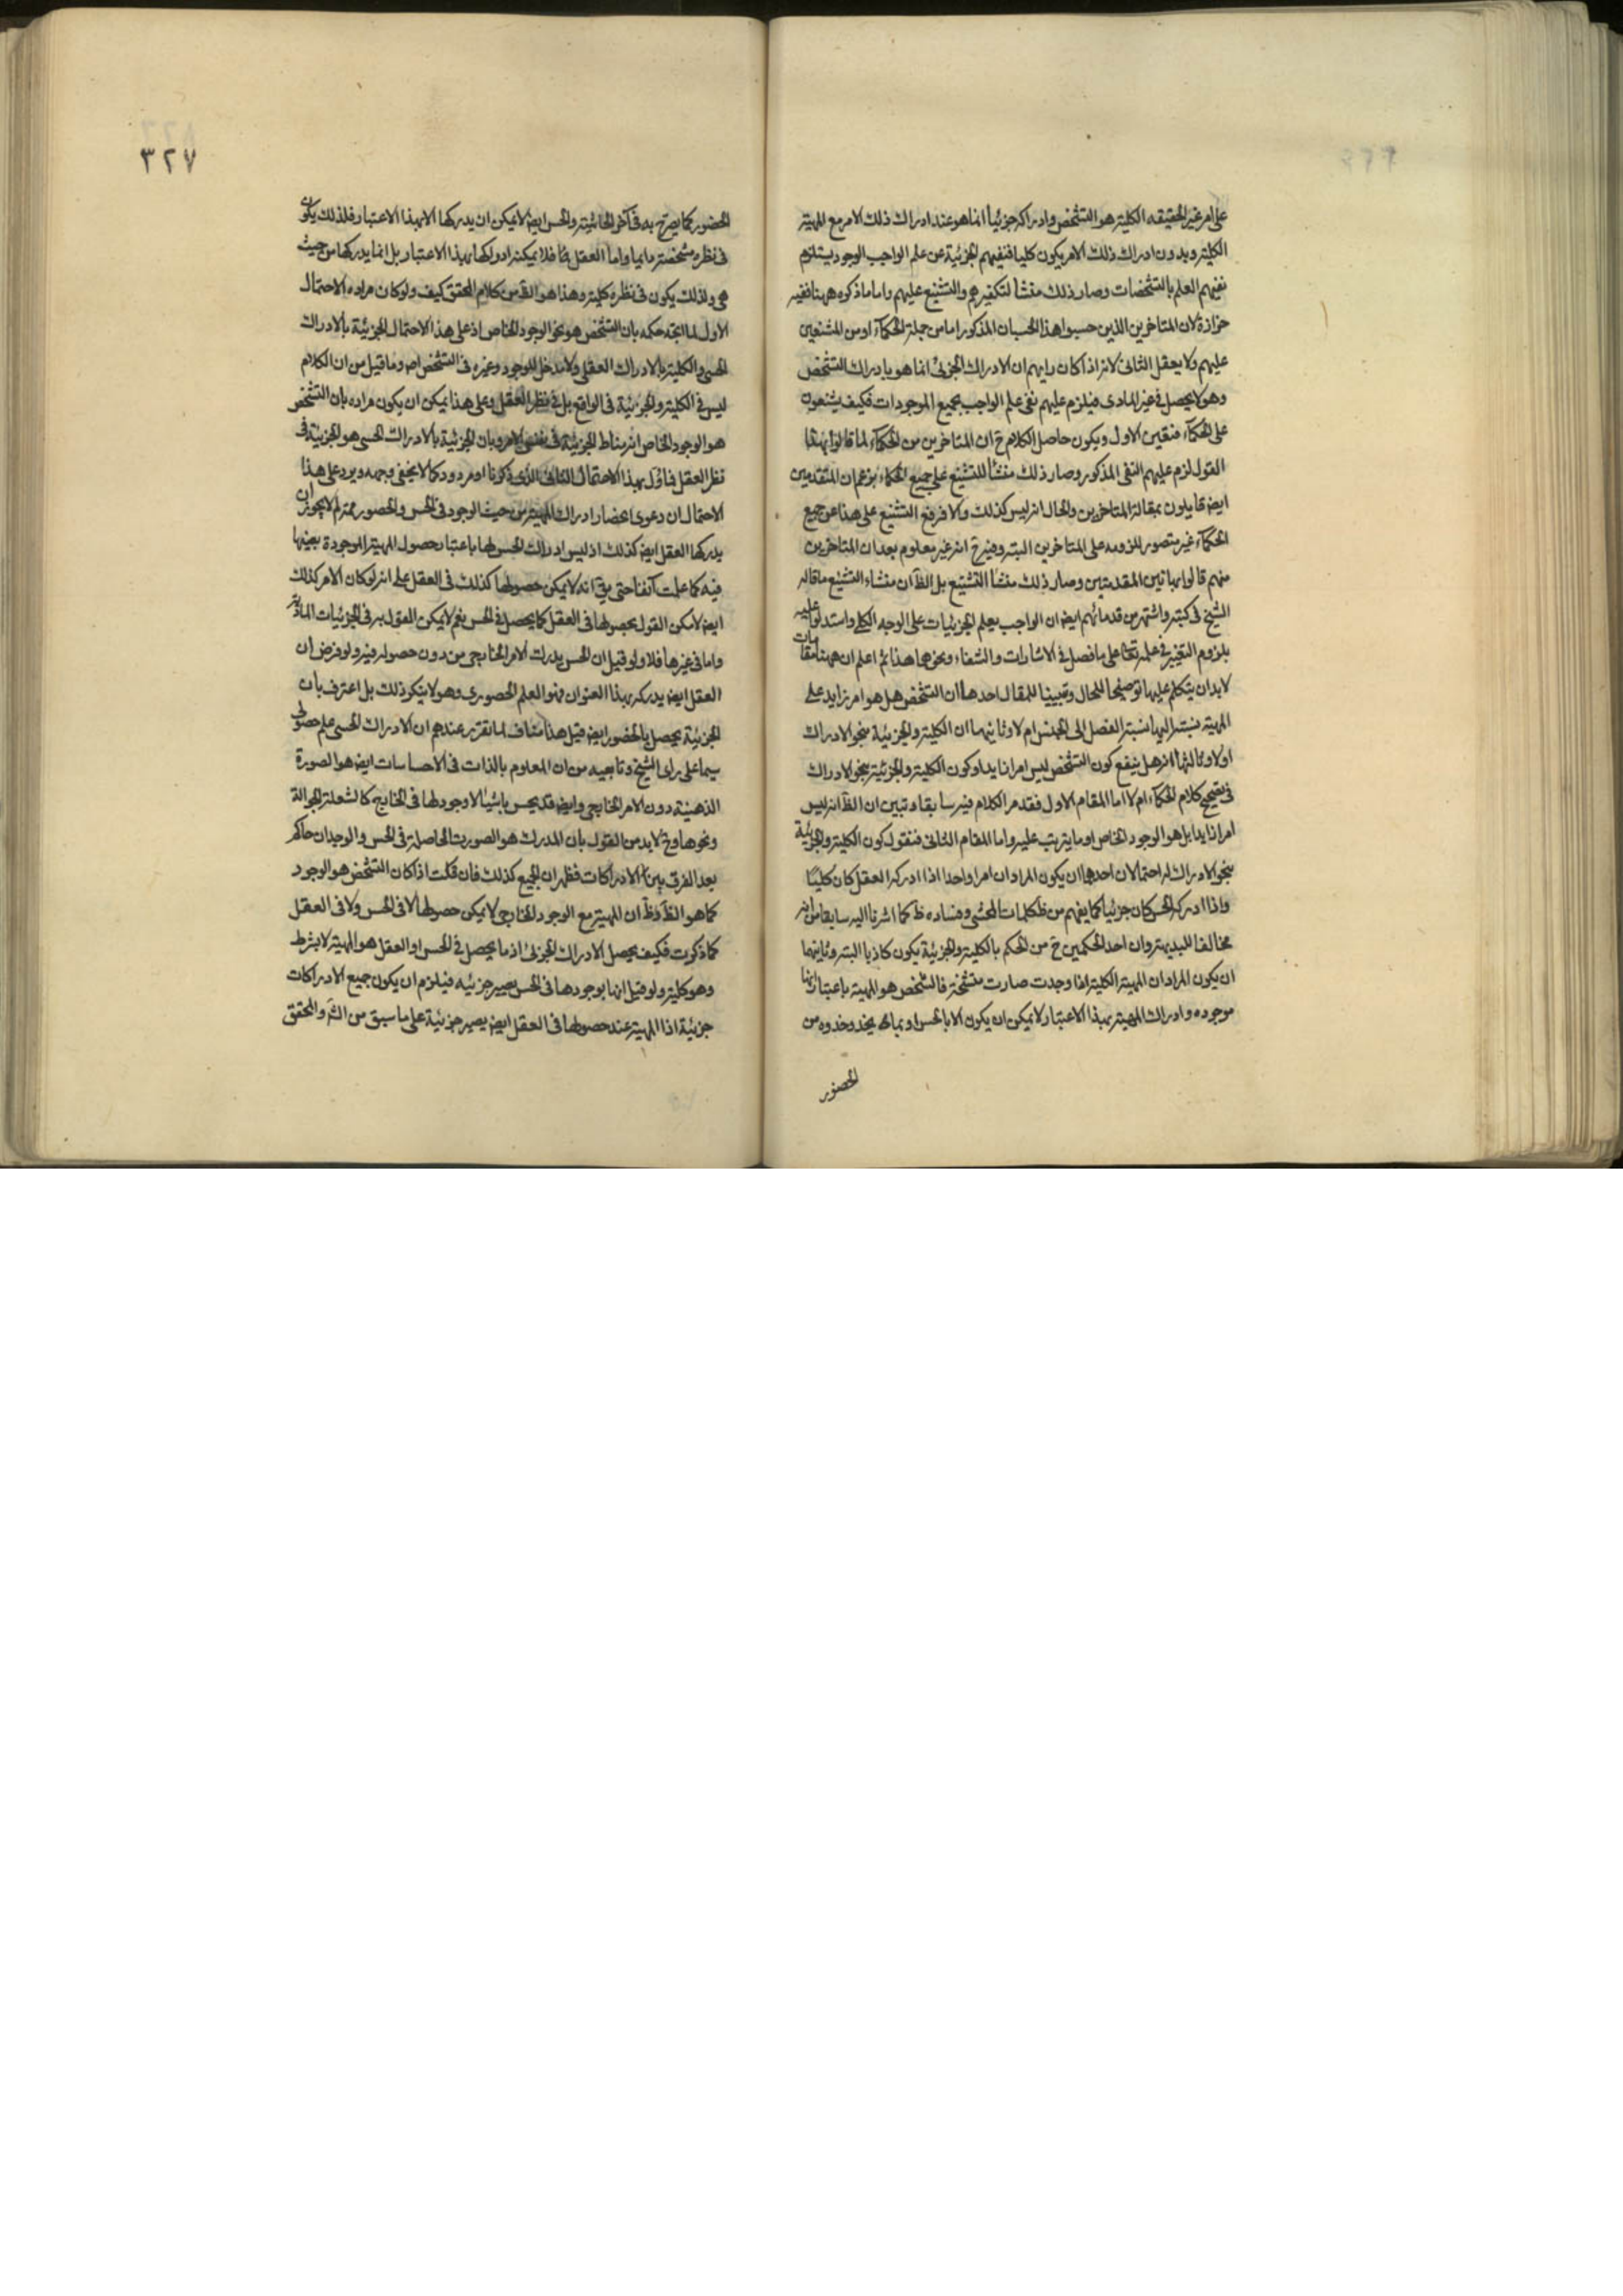 على امر غير الحقيقه الكلية هو التشخص وادراكه جزئيا انما هو عند ادراك ذلك الامر مع المهية
الكلية وبدون ادراك ذلك الامر يكون كليا فنفيهم الجزئية عن علم الواجب الوجود يستلزم
نفيهم العلم بالتشخصات وصار ذلك منشأ لتكفيرهم والتشنيع عليهم واما ما ذكره ههنا ففيه
حزازة لان المتاخرين الذين حسبوا هذا الحسبان المذكور اما من جملة الحكماء او من المشنعين
عليهم ولا يعقل الثانى لانه اذا كان رايهم ان الادراك الجزئى انما هو بادراك التشخص
وهو لا يحصل فى غير المادى فيلزم عليهم نفى علم الواجب بجميع الموجودات فكيف يشنعون
على الحكماء فتعين الاول ويكون حاصل الكلام ح ان المتاخرين من الحكماء لما قالوا بهذا
القول لزم عليهم النفى المذكور وصار ذلك منشأ للتشنيع على جميع الحكماء بزعم ان المتقدمين
ايض قايلون بمقالة المتاخرين والحال انه ليس كذلك والا فرفع التشنيع على هذا عن جميع
الحكماء غير متصور للزومه على المتاخرين البتة وفيه ح انه غير معلوم بعد ان المتاخرين
منهم قالوا بهاتين المقدمتين وصار ذلك منشأ التشنيع بل الظ ان منشاء التشنيع ما قاله
الشيخ فى كتبه واشتهر من قدمائهم ايض ان الواجب يعلم الجزئيات على الوجه الكلى واستدلوا عليه
بلزوم التغير فى علمه تعا على ما فصل فى الاشارات والشفاء ونحوهما هذا ثم اعلم ان ههنا مقامات
لابد ان يتكلم عليها توضيحا للحال وتبيينا للمقال احدها ان التشخص هل هو امر زايد على
المهية نسبته اليها نسبة الفصل الى الجنس ام لا وثانيهما ان الكلية والجزئية بنحو الادراك
او لا وثالثها انه هل ينفع كون التشخص ليس امرا زايدا وكون الكلية والجزئية بنحو الادراك
فى تصحيح كلام الحكماء ام لا اما المقام الاول فقد مر الكلام فيه سابقا وتبين ان الظ انه ليس
امرا زايدا بل هو الوجود الخاص او ما يترتب عليه واما المقام الثانى فنقول كون الكلية والجزئية
بنحو الادراك له احتمالان احدهما ان يكون المراد ان امرا واحدا اذا ادركه العقل كان كليا
واذا ادركه الحس كان جزئيا كما يفهم من ظ كلمات المحشى وفساده ظ كما اشرنا اليه سابقا من انه
مخالف للبديهة وان احد الحكمين ح من الحكم بالكلية والجزئية يكون كاذبا البتة وثانيهما
ان يكون المراد ان المهية الكلية اذا وجدت صارت متشخصة فالشخص هو المهية باعتبار انها
موجوده وادراك المهية بهذا الاعتبار لا يمكن ان يكون الا بالحس او بما يحذو حذوه من
الحضور
٣٢٧
الحضور كما يصرح به فى آخر الحاشية والحس ايض لا يمكن ان يدركها الا بهذا الاعتبار فلذلك يكون
فى نظره مشخصة دايما واما العقل منا فلا يمكنه ادراكها بهذا الاعتبار بل انما يدركها من حيث
هى ولذلك يكون فى نظره كلية وهذا هو القد من كلام المحقق كيف ولو كان مراده الاحتمال
الاول لما اتجه حكمه بان التشخص هو نحو الوجود الخاص اذ على هذا الاحتمال الجزئية بالادراك
الحسى والكلية بالادراك العقلى ولا مدخل للوجود وغيره فى التشخص اص وما قيل من ان الكلام
ليس فى الكلية والجزئية فى الواقع بل فى نظر العقل وعلى هذا يمكن ان يكون مراده بان التشخص
هو الوجود الخاص انه مناط الجزئية فى نفس الامر وبان الجزئية بالادراك الحسى هو الجزئية فى
نظر العقل فاوّل بهذا الاحتمال الثانى الذى ذكرنا او مردود كما لا يخفى وجهه ويرد على هذا
الاحتمال ان دعوى انحصار ادراك المهية من حيث الوجود فى الحس والحضور مم لم لا يجوز ان
يدركها العقل ايض كذلك اذ ليس ادراك الحس لها باعتبار حصول المهية الموجودة بعينها
فيه كما علمت آنفا حتى يق انه لا يمكن حصولها كذلك فى العقل على انه لو كان الامر كذلك
ايض لامكن القول بحصولها فى العقل كما يحصل فى الحس نعم لا يمكن القول به فى الجزئيات المادية
واما فى غيرها فلا ولو قيل ان الحس يدرك الامر الخارجى من دون حصوله فيه ولو فرض ان
العقل ايض يدركه بهذا العنوان فهو العلم الحضورى وهو لا ينكر ذلك بل اعترف بان
الجزئية يحصل بالحضور ايض قيل هذا مناف لما تقرر عندهم ان الادراك الحسى علم حصولى
سيما على راى الشيخ وتابعيه من ان المعلوم بالذات فى الاحساسات ايض هو الصورة
الذهنية دون الامر الخارجى وايض قد يحس باشياء لا وجود لها فى الخارج كالشعلة الجوالة
ونحوها وح لابد من القول بان المدرك هو الصورة الحاصلة فى الحس والوجدان حاكم
بعد الفرق بين الادراكات فظهر ان الجميع كذلك فان قلت اذا كان التشخص هو الوجود
كما هو الظ وظ ان المهية مع الوجود الخارجى لا يمكن حصولها لا فى الحس ولا فى العقل
كما ذكرت فكيف يحصل الادراك الجزئى اذ ما يحصل فى الحس او العقل هو المهية لا بشرط
وهو كلية ولو قيل انها بوجودها فى الحس يصير جزئيه فيلزم ان يكون جميع الادراكات
جزئية اذ المهية عند حصولها فى العقل ايض يصير جزئية على ما سبق من الش والمحقق